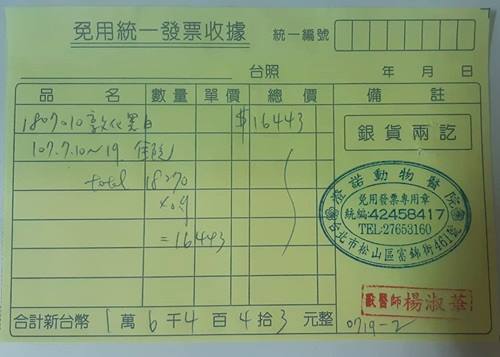 免用統一發票收據
統一編號
台照 年 月 日
品名 數量 單價 總價 備註
1807010 敦化黑白 $16443
107.7.10~19 住院
total 18270
×0.9
=16443
銀貨兩訖
澄諾動物醫院
免用發票專用章
統編:42458417
TEL:27653160
台北市松山區富錦街461號
獸醫師 楊淑華
合計新台幣 1萬6千4百4拾3元整
0719-2